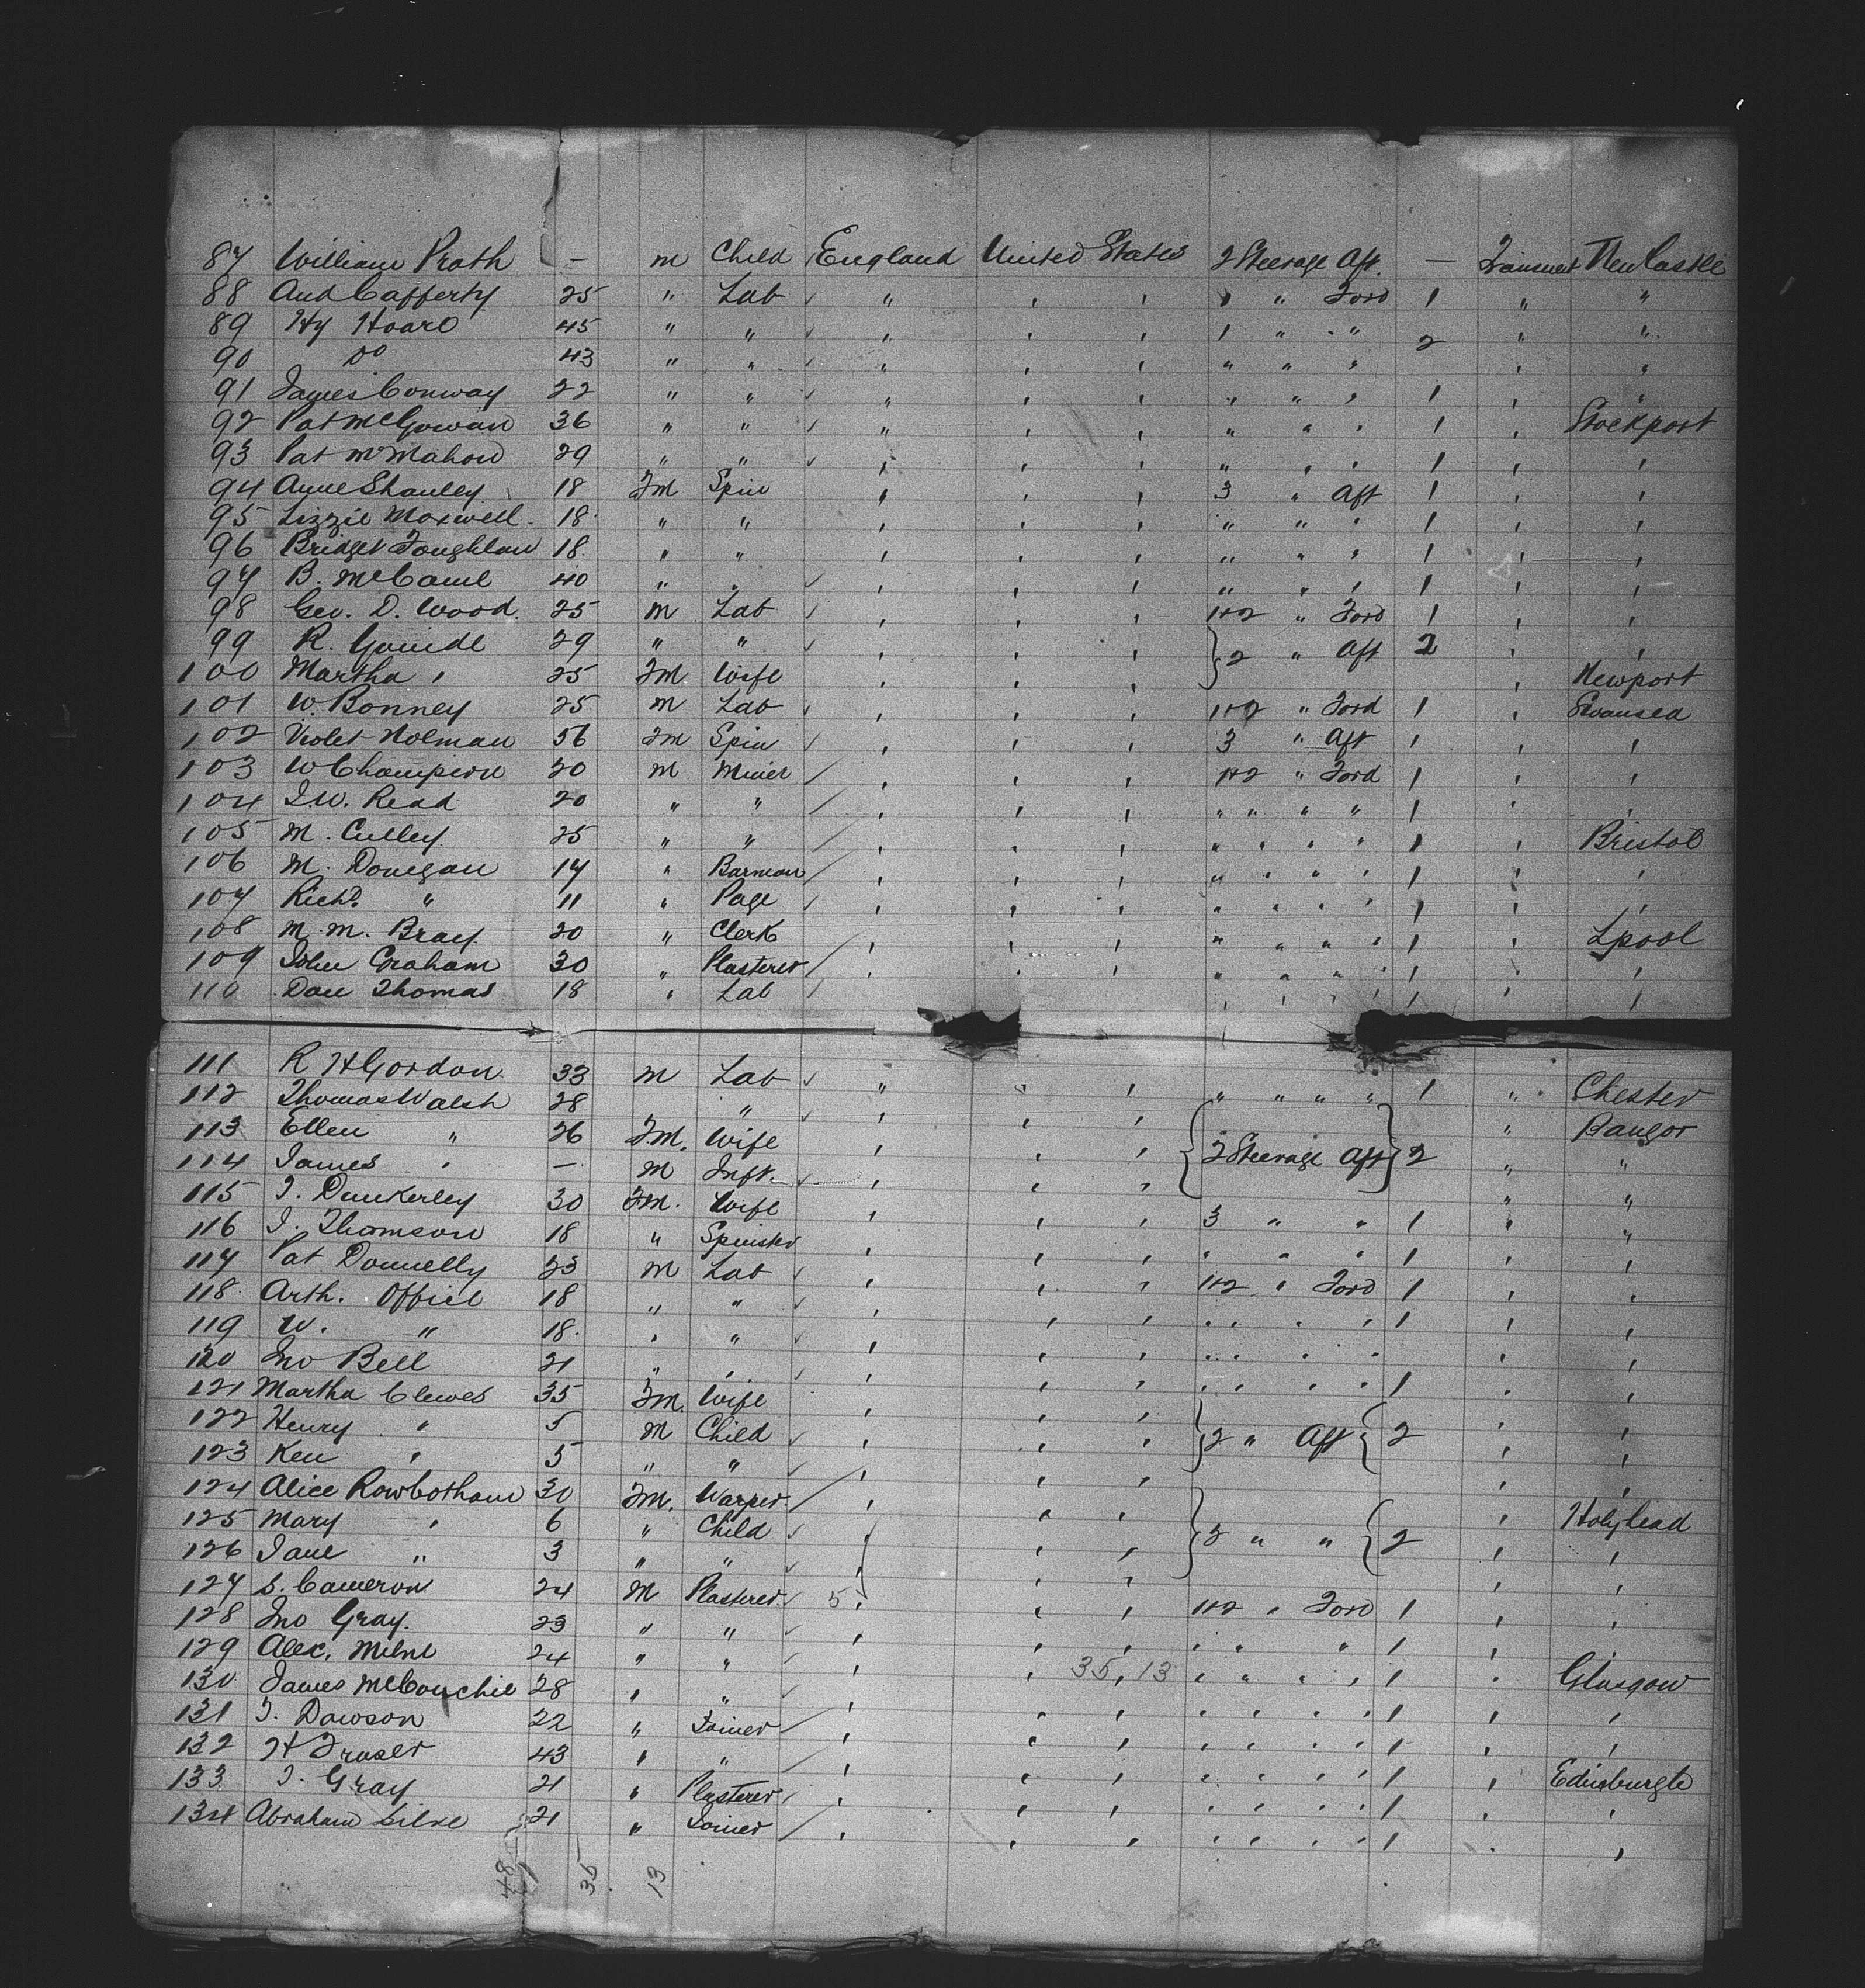 87 William Prath — m Child England United States 2 Steerage Aft. — Transient New Castle
88 And Cafferty 25 " Lab " " " 1 " Ford 1 " "
89 Hy Hoare 45 " " " " " 1 " " 2 " "
90 Do 43 " " " " " " " " " "
91 James Conway 22 " " " " " " " " 1 " "
92 Pat McGowan 36 " " " " " " " " 1 " Stockport
93 Pat McMahon 29 " " " " " " " " 1 " "
94 Anne Shanley 18 Fm Spin " " " 3 " Aft 1 " "
95 Lizzie Maxwell. 18 " " " " " " " " 1 " "
96 Bridget 18 " " " " " " " " 1 " "
97 B. 40 " " " " " " " " 1 " "
98 Geo. D. Wood. 25 m Lab " " " 1+2 " Ford 1 " "
99 R. 29 " " " " " 2 " Aft 2 " "
100 Martha " 25 Fm Wife " " " " Newport
101 W. Bonney 25 m Lab " " " 1+2 " Ford 1 " Swansea
102 Violet Holman 56 Fm Spin " " " 3 " Aft 1 " "
103 W Champion 20 m Miner " " " 1+2 " Ford 1 " "
104 J.W. Read 20 " " " " " " " " " 1 " "
105 M. Culley 25 " " " " " " " " " 1 " Bristol
106 M. Donegan 14 " Barman " " " " " " " 1 " "
107 Richd. " 11 " Page " " " " " " " 1 " "
108 M. M. Bray 20 " Clerk " " " " " " " 1 " Lpool
109 John Graham 30 " Plasterer " " " " " " " 1 " "
110 Dan Thomas 18 " Lab " " " " 1 " "
111 R H Gordon 33 m Lab " " " " " " " 1 " Chester
112 Thomas Walsh 28 " " " " " Bangor
113 Ellen " 26 Fm. Wife " " " 2 Steerage Aft 2 " "
114 James " — m Inft. " " " " "
115 J. Dunkerley 30 Fm. Wife " " " 3 " " 1 " "
116 J. Thomson 18 " Spinster " " " " " " 1 " "
117 Pat Donnelly 23 m Lab " " " 1+2 " Ford 1 " "
118 Arth. 18 " " " " " " " " " 1 " "
119 W. " 18. " " " " " " " " " " "
120 Jno Bell 21 " " " " " " " " " 1 " "
121 Martha Clewes 35 Fm. Wife " " " " "
122 Henry " 5 m Child " " " 2 " Aft 2 " "
123 Ken " 5 " " " " " " "
124 Alice Rowbotham 30 Fm. Warper " " " " Holyhead
125 Mary " 6 " Child " " 2 " " 2 " "
126 Jane " 3 " " " " " "
127 S. Cameron 24 m Plasterer 5 " " " 1+2 " Ford 1 " "
128 Jno Gray. 23 " " " " " " " " 1 " "
129 Alex. Milne 24 " " " " 35, 13 " " " " 1 " Glasgow
130 James McConchie 28 " " " " " " " " " 1 " "
131 J. Dawson 22 " Joiner " " " " " " " 1 " "
132 H Fraser 43 " " " " " " " " " 1 " Edinburgh
133 J. Gray 21 " Plasterer " " " " " " " 1 " "
134 Abraham 21 " Joiner " " " " " " " 1 " "
48 35. 13